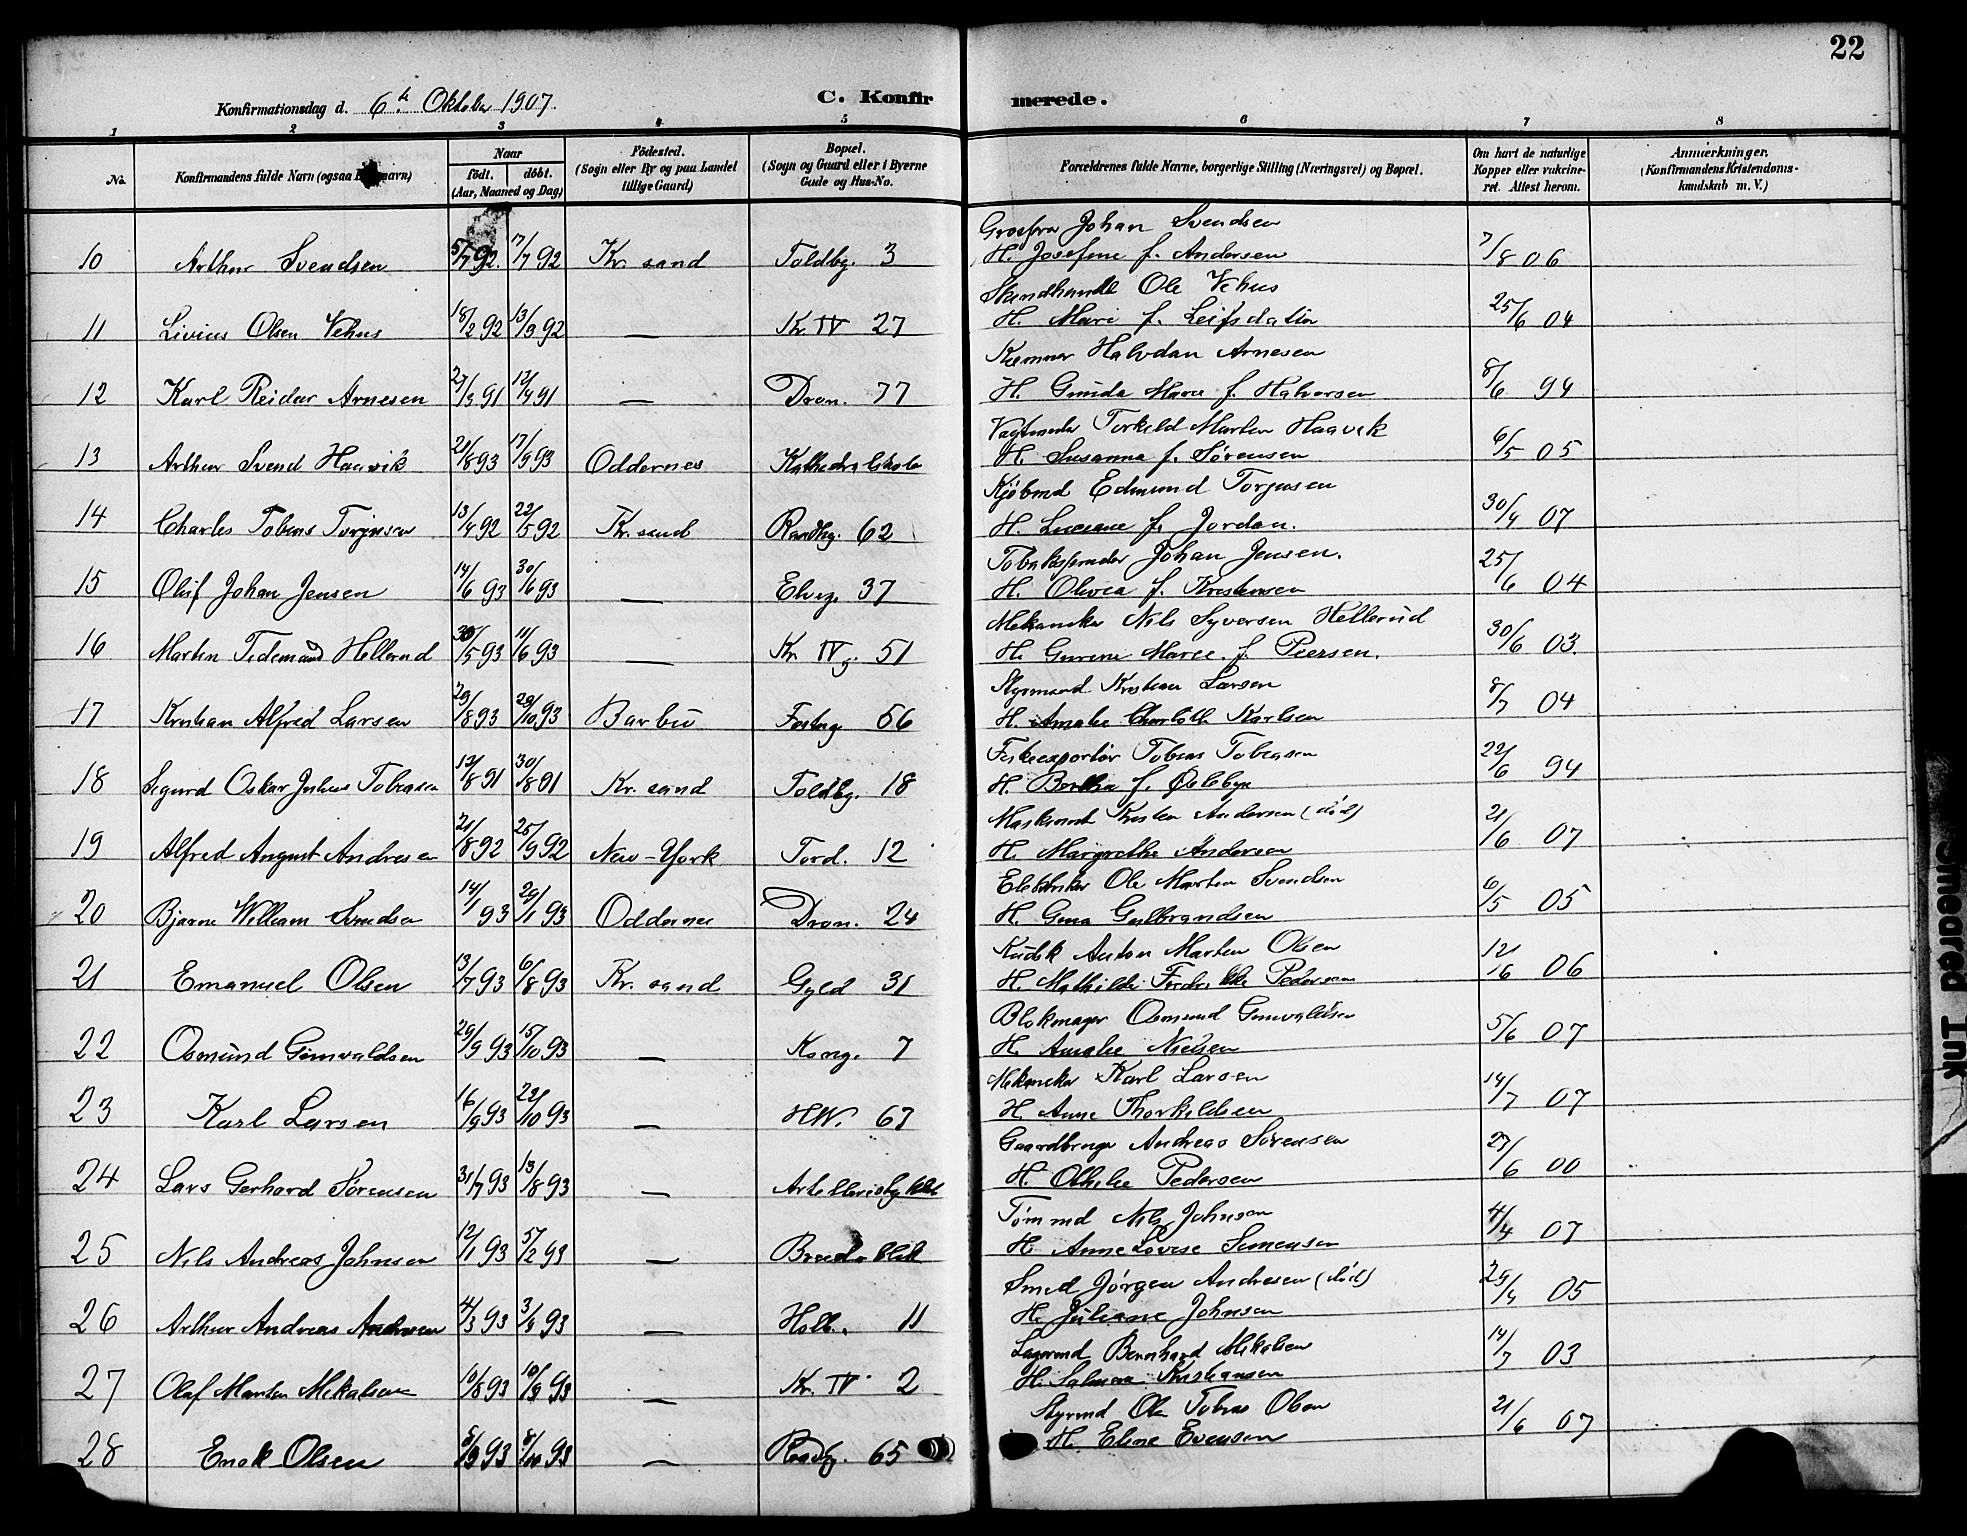 22
Konfirmationsdag d. 6te Oktober 1907.
C. Konfirmerede.
1 2 3 4 5 6 7 8
No.
Konfirmandens fulde Navn (ogsaa navn)
Naar
født. døbt.
(Aar, Maaned og Dag)
Fødested.
(Sogn eller By og paa Landet
tillige Gaard)
Bopæl.
(Sogn og Gaard eller i Byerne
Gade og Hus-No.
Forældrenes fulde Navne, borgerlige Stilling (Næringsvei) og Bopæl.
Om havt de naturlige
Kopper eller vakcine-
ret. Attest herom.
Anmærkninger.
(Konfirmandens Kristendoms-
kundskab m. V.)
Johan Svendsen
10 Arthur Svendsen 5/7 92. 17/7 92 Kr. sand Toldbg. 3 H. Josefine f. Andersen 7/8 06
Ole Vehus
11 Livius Olsen Vehus 18/2 92 13/3 92 — Kr IV 27 H. Mari f. Leifsdatter 25/6 04
Kæmner Halvdan Arnesen
12 Karl Reidar Arnesen 27/3 91 12/4 91 — Dron. 77 H. Gunda Marie f. Halvorsen 8/6 94
Vagtmester Torkeld Martin Haavik
13 Arthur Svend Haavik 21/8 93 17/9 93 Oddernes Kathedralskole H. Susanna f. Sørensen 6/5 05
Kjøbmd Edmund Torjusen
14 Charles Tobias Torjusen 13/4 92 22/5 92 Kr. sand Raadhg. 62 H. f. Jordan. 30/4 07
Johan Jensen.
15 Oluf Johan Jensen 14/6 93 30/6 93 — Elveg. 37 H. Olivia f. Kristensen 25/6 04
Mekaniker Nils Syversen Hellerud
16 Martin Tidemand Hellerud 30/5 93 11/6 93 — Kr. IVg. 51 H. Marie f. Peersen. 30/6 03.
Styrmand Kristian Larsen
17 Kristian Alfred Larsen 29/8 93 29/10 93 Barbu Festng 56 H. Amalie Charlotte Karlsen 8/7 04
Fiskeexportør Tobias Tobiasen
18 Sigurd Oskar Julius Tobiasen 12/8 91 30/8 91 Kr. sand Toldbg. 18 H. Bertha f. 22/6 94
Maskinist Kristen Andersen (død)
19 Alfred August Andresen 21/8 92 25/9 92 New-York Tord. 12 H. Margrethe Andersen 21/6 07
Ole Martin Svendsen
20 Bjarne William Svendsen 14/1 93 29/1 93 Oddernes Dron. 24 H. Gina Gulbrandsen 6/5 05
Kudsk Anton Martin Olsen
21 Emanuel Olsen 13/7 93 6/8 93 Kr. sand Gyld 31 H. Mathilde Fredrikke Pedersen 12/6 06
Blokmager Osmund Gunvaldsen
22 Osmund Gunvaldsen 29/9 93 15/10 93 — Kong. 7 H. Amalie Nielsen 5/6 07
Mekaniker Karl Larsen
23 Karl Larsen 16/9 93 22/10 93 — H.W. 67 H. Anne Thorkildsen 14/7 07
Gaardbruger Andreas Sørensen
24 Lars Gerhard Sørensen 31/7 93 13/8 93 — H. Othilie Pedersen 27/6 00
Tømmd Nils Johnsen
25 Nils Andreas Johnsen 12/1 93 5/2 93 — Breidablik H. Anne Lovise Simensen 4/4 07
Smed Jørgen Andresen (død)
26 Arthur Andreas Andresen 4/3 93 3/4 93 — Holb. 11 H. Juliane Johnsen 25/4 05
Lagermd Bernhard Mikalsen
27 Olaf Martin Mikalsen 10/8 93 10/9 93 — Kr. IV 2 H. Kristiansen 14/7 03
Styrmd Ole Tobias Olsen
28 Enok Olsen 5/9 93 8/10 93 — Raadhg. 65 H. Eline Evensen 21/6 07
Smeared Ink